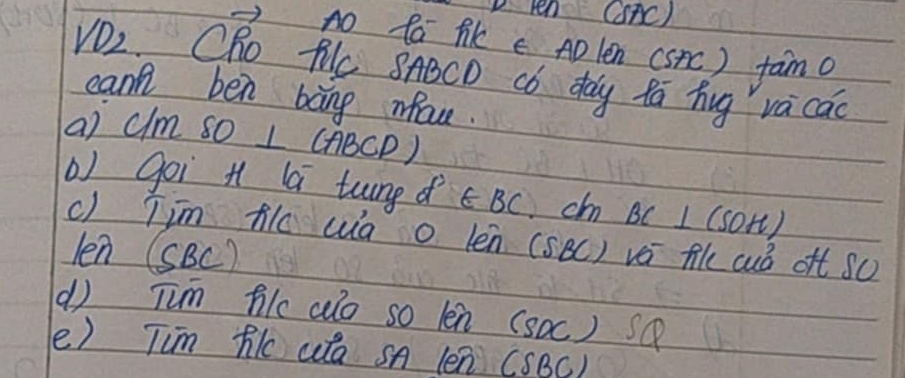 lên (SAC)
→ AO là h/c ∈ AD lên (SAC)
VD2. Cho h/c SABCD có đáy là hvg tâm O và các
cạnh bên bằng nhau.
a) c/m SO ⊥ (ABCD)
b) Gọi H là trung đ' ∈ BC. cm BC ⊥ (SOH)
c) Tìm h/c của O lên (SBC) và h/c của SO
lên (SBC)
d) Tìm h/c của SO lên (SDC) SQ
e) Tìm h/c của SA lên (SBC)